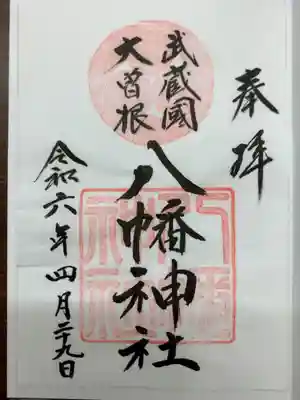 奉拝
武蔵國
大曽根
八幡神社
令和六年四月二十九日